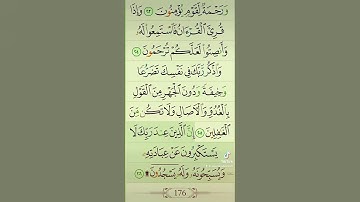 وَرَحْمَةٌ لِّقَوْمٍ يُؤْمِنُونَ ٢٠٣ وَإِذَا
قُرِئَ ٱلْقُرْءَانُ فَٱسْتَمِعُوا۟ لَهُۥ
وَأَنصِتُوا۟ لَعَلَّكُمْ تُرْحَمُونَ ٢٠٤
وَٱذْكُر رَّبَّكَ فِى نَفْسِكَ تَضَرُّعًا
وَخِيفَةً وَدُونَ ٱلْجَهْرِ مِنَ ٱلْقَوْلِ
بِٱلْغُدُوِّ وَٱلْـَٔاصَالِ وَلَا تَكُن مِّنَ
ٱلْغَـٰفِلِينَ ٢٠٥ إِنَّ ٱلَّذِينَ عِندَ رَبِّكَ لَا
يَسْتَكْبِرُونَ عَنْ عِبَادَتِهِۦ
وَيُسَبِّحُونَهُۥ وَلَهُۥ يَسْجُدُونَ ۩ ٢٠٦
176